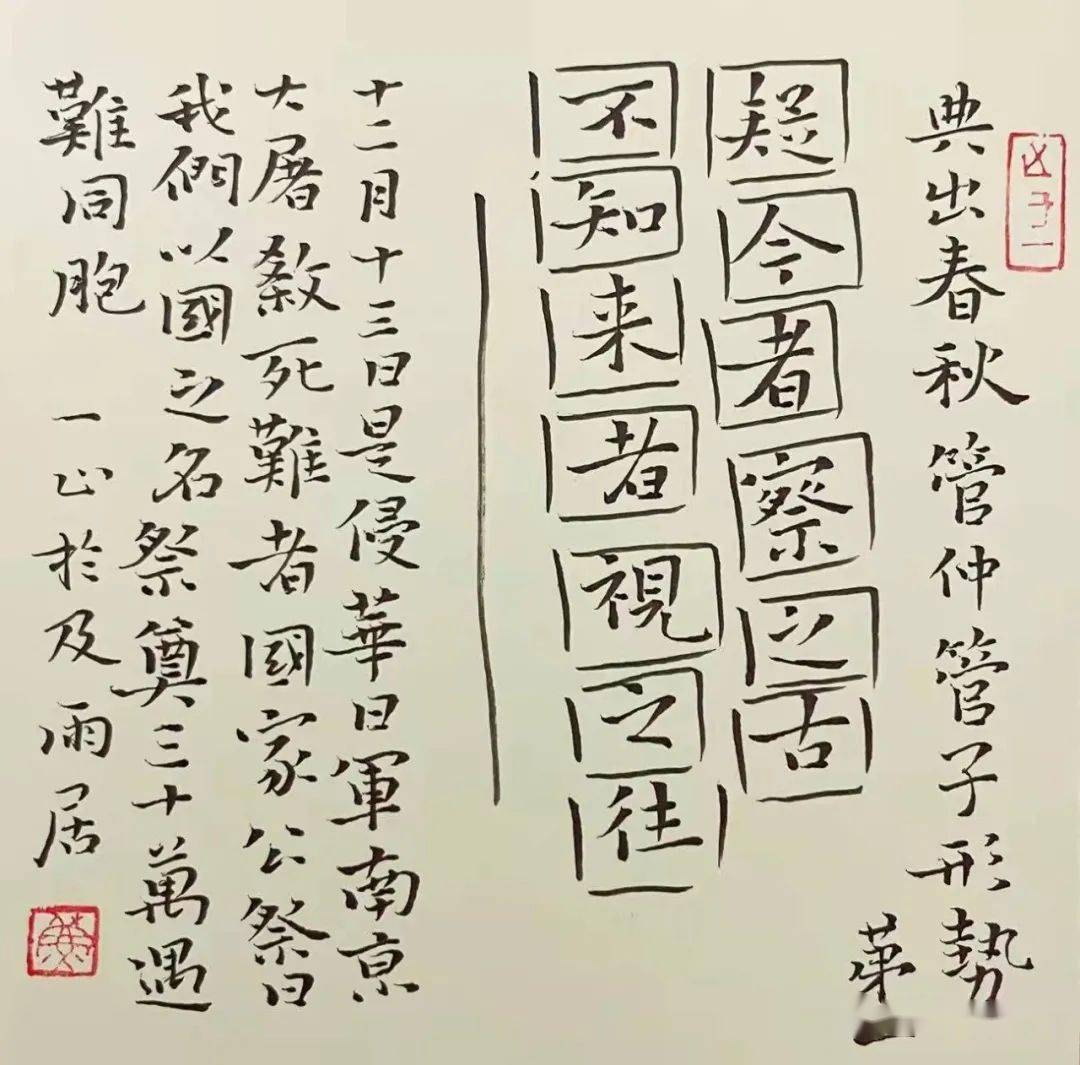 典出春秋管仲管子形勢
第一
疑今者察之古
不知来者視之往
十二月十三日是侵華日軍南京
大屠殺死難者國家公祭日
我們以國之名祭奠三十萬遇
難同胞 一山於及雨居